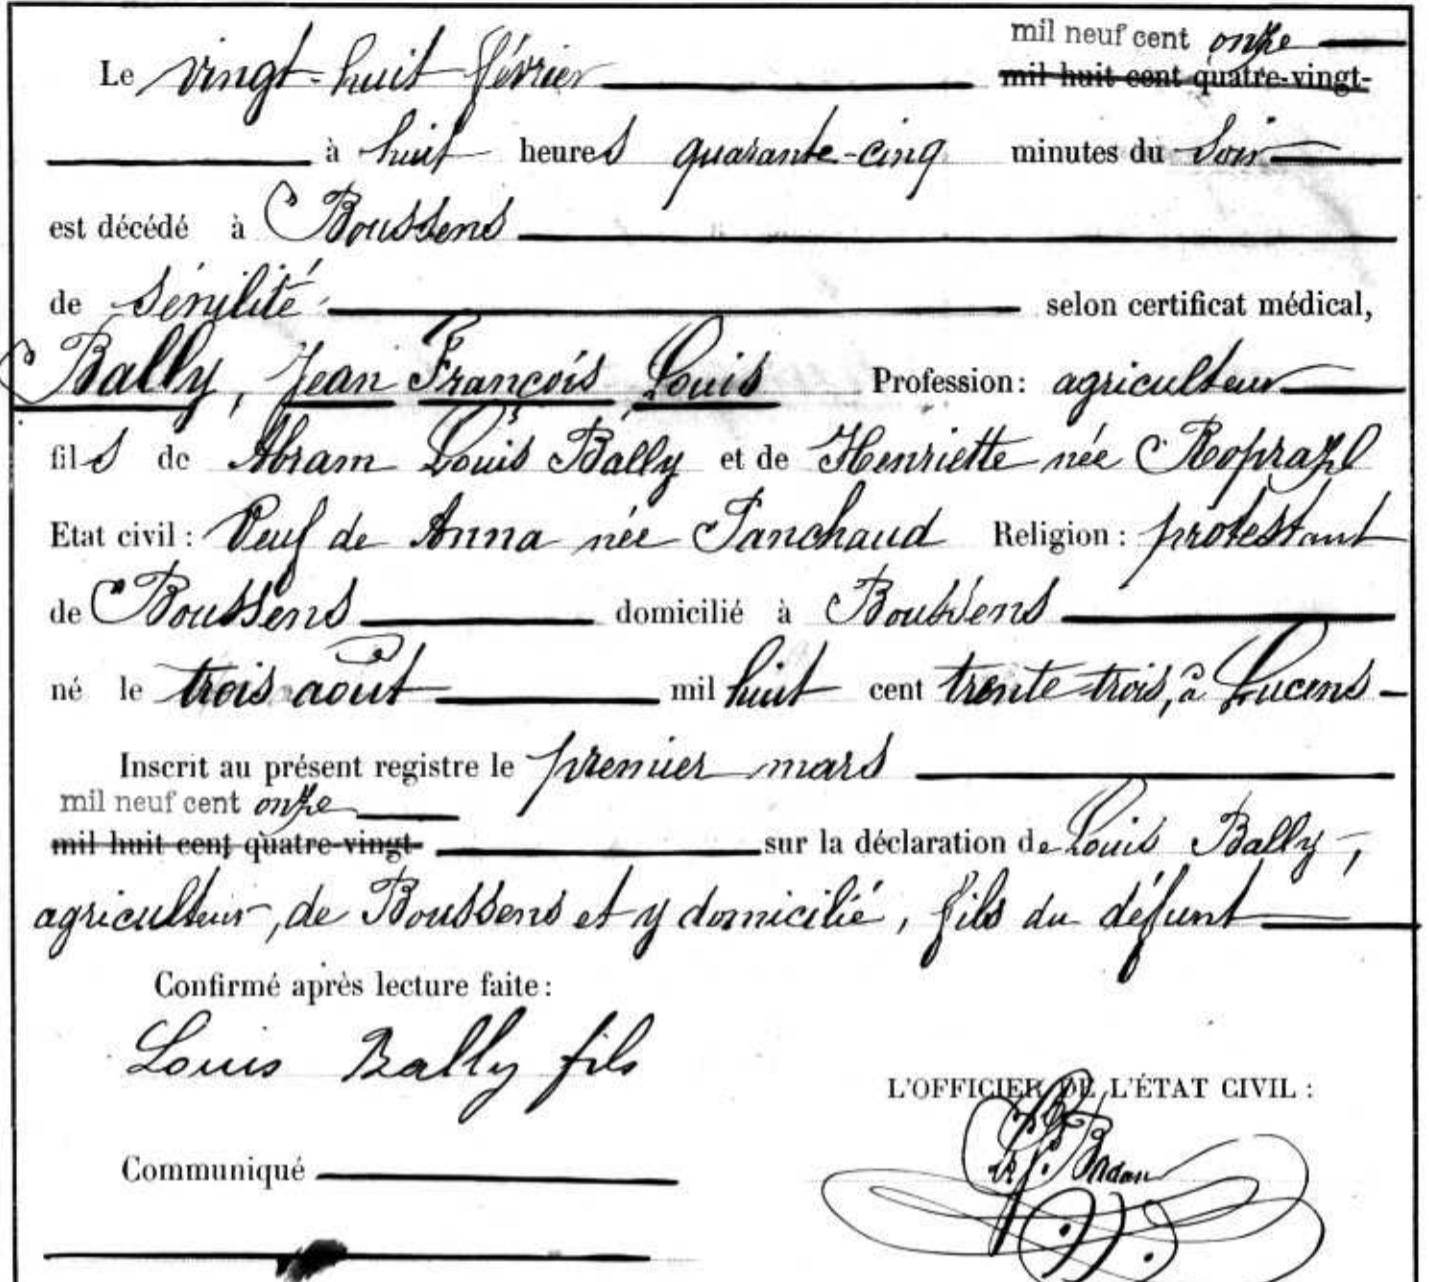 mil neuf cent onze
Le vingt-huit février mil huit cent quatre-vingt-
à huit heures quarante-cinq minutes du soir
est décédé à Boussens
de sénilité selon certificat médical,
Bally, Jean François Louis Profession: agriculteur
fils de Abram Louis Bally et de Henriette née Ropraz
Etat civil: Veuf de Anna née Panchaud Religion: protestant
de Boussens domicilié à Boussens
né le trois août mil huit cent trente trois, à Lucens
Inscrit au présent registre le premier mars
mil neuf cent onze
mil huit cent quatre-vingt- sur la déclaration de Louis Bally,
agriculteur, de Boussens et y domicilié, fils du défunt
Confirmé après lecture faite:
Louis Bally fils
L'OFFICIER DE L'ÉTAT CIVIL:
Communiqué